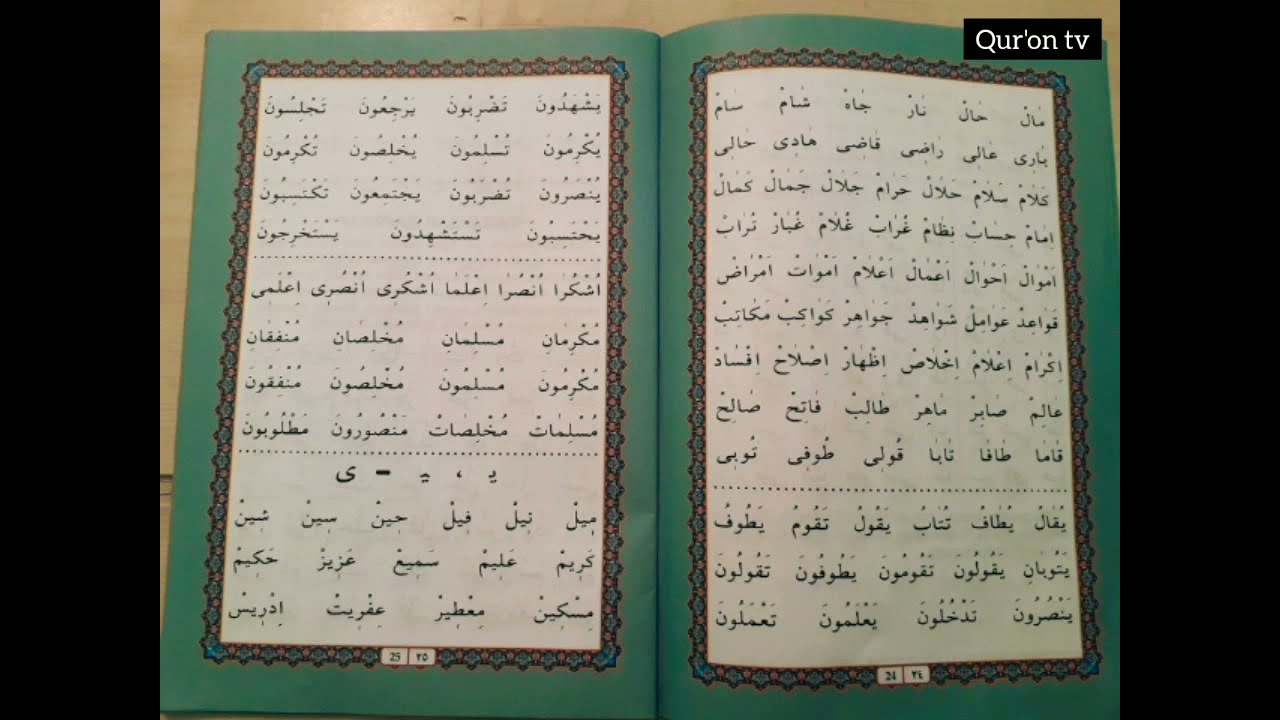 Qur'on tv
مَالْ حَالْ نَارْ جَاهْ شَامْ سَامْ
بَارِى عَالِى رَاضِى قَاضِى هَادِى حَالِى
كَلَامْ سَلَامْ حَلَالْ حَرَامْ جَلَالْ جَمَالْ كَمَالْ
اِمَامْ حِسَابْ نِظَامْ غُرَابْ غُلَامْ غُبَارْ تُرَابْ
اَمْوَالْ اَحْوَالْ اَعْمَالْ اَعْلَامْ اَمْوَاتْ اَمْرَاضْ
قَوَاعِدْ عَوَامِلْ شَوَاهِدْ جَوَاهِرْ كَوَاكِبْ مَكَاتِبْ
اِكْرَامْ اِعْلَامْ اِخْلَاصْ اِظْهَارْ اِصْلَاحْ اِفْسَادْ
عَالِمْ صَابِرْ مَاهِرْ طَالِبْ فَاتِحْ صَالِحْ
قَامَا طَافَا تَابَا قُولِى طُوفِى تُوبِى
يُقَالُ يُطَافُ تُتَابُ يَقُولُ تَقُومُ يَطُوفُ
يَتُوبَانِ يَقُولُونَ تَقُومُونَ يَطُوفُونَ تَقُولُونَ
يَنْصُرُونَ تَدْخُلُونَ يَعْلَمُونَ تَعْمَلُونَ
24 ٢٤
يَشْهَدُونَ تَضْرِبُونَ يَرْجِعُونَ تَجْلِسُونَ
يُكْرِمُونَ تُسْلِمُونَ يُخْلِصُونَ تُكْرِمُونَ
يُنْصَرُونَ تُضْرَبُونَ يَجْتَمِعُونَ تَكْتَسِبُونَ
يَحْتَسِبُونَ تَسْتَشْهِدُونَ يَسْتَخْرِجُونَ
اُشْكُرَا اُنْصُرَا اِعْلَمَا اُشْكُرِى اُنْصُرِى اِعْلَمِى
مُكْرِمَانِ مُسْلِمَانِ مُخْلِصَانِ مُنْفِقَانِ
مُكْرِمُونَ مُسْلِمُونَ مُخْلِصُونَ مُنْفِقُونَ
مُسْلِمَاتْ مُخْلِصَاتْ مَنْصُورُونَ مَطْلُوبُونَ
يـ ، ـيـ - ى
مِيلْ نِيلْ فِيلْ حِينْ سِينْ شِينْ
كَرِيمْ عَلِيمْ سَمِيعْ عَزِيزْ حَكِيمْ
مِسْكِينْ مِعْطِيرْ عِفْرِيتْ اِدْرِيسْ
25 ٢٥